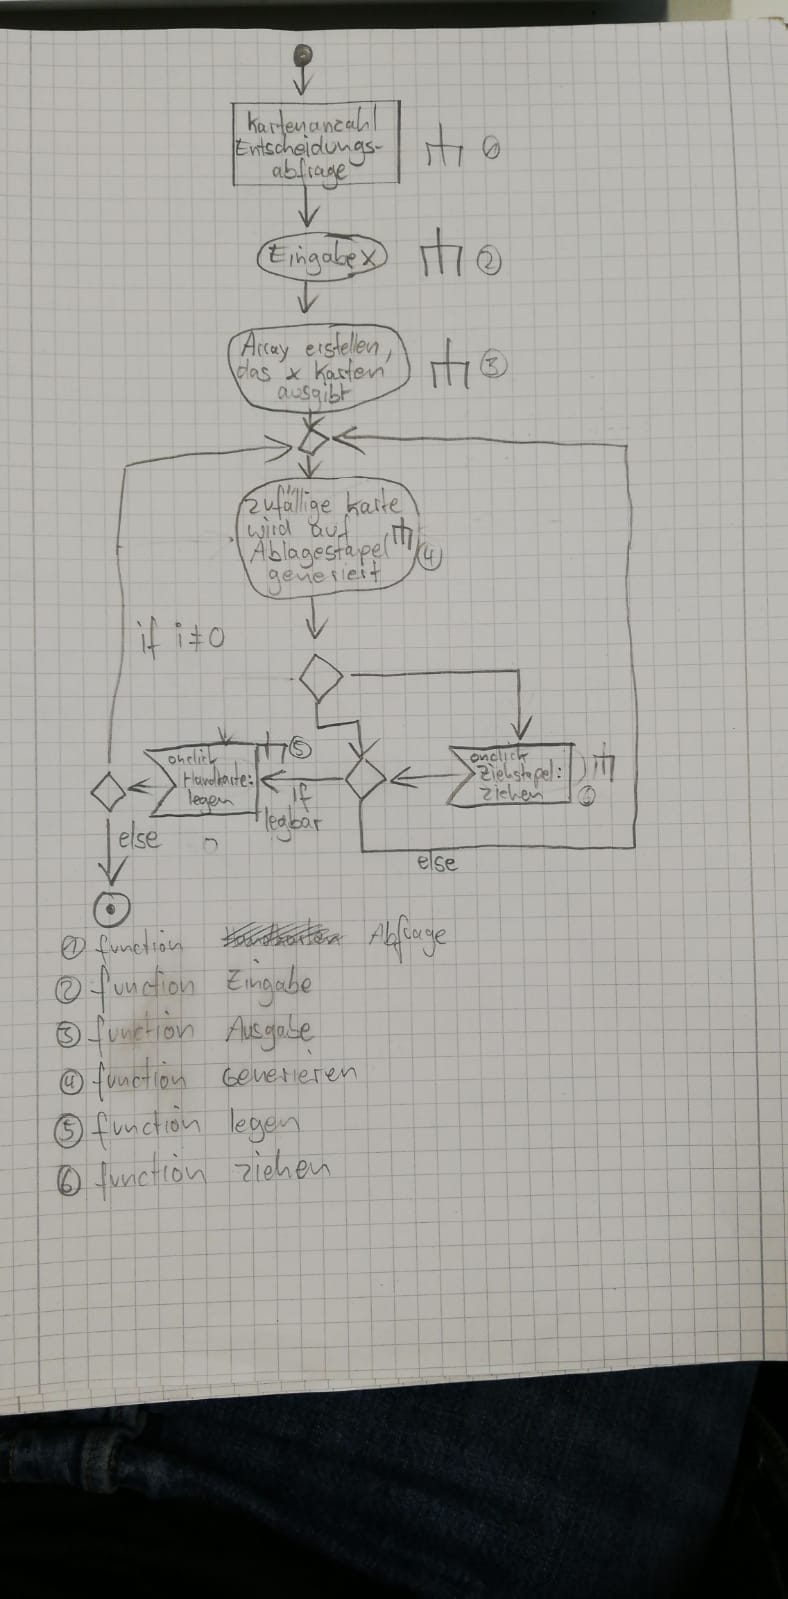 Kartenanzahl
Entscheidungs-
abfrage
①
Eingabe x
②
Array erstellen,
das x Karten
ausgibt
③
zufällige Karte
wird auf
Ablagestapel
generiert
④
if i≠0
onclick
Handkarte:
legen
⑤
if
legbar
onclick
Ziehstapel:
ziehen
⑥
else
else
① function Abfrage
② function Eingabe
③ function Ausgabe
④ function Generieren
⑤ function legen
⑥ function ziehen